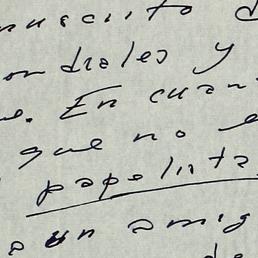 nuscrito d
ondiales y
e. En cuan
que no e
papelita
a un amig
de